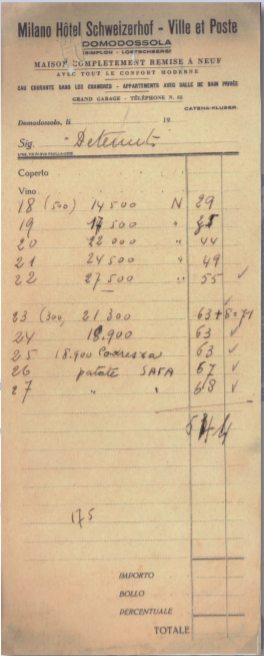 Milano Hôtel Schweizerhof - Ville et Poste
DOMODOSSOLA
(SIMPLON - LOETSCHBERG)
MAISON COMPLETEMENT REMISE À NEUF
AVEC TOUT LE CONFORT MODERNE
EAU COURANTE DANS LES CHAMBRES - APPARTEMENTS AVEC SALLE DE BAIN PRIVÉE
GRAND GARAGE - TÉLÉPHONE N. 62
CATENA-KLUSER
Domodossola, li 19
Sig. Detenuti
Coperto
Vino
18 (500) 14 500 N 29
19 500 "
20 22 000 " 44
21 24 500 " 49
22 27 500 " 55
23 (300, 21 300 63+8=71
24 18.900 63
25 18.900 63
26 patate 67
27 " " 68
544
175
IMPORTO
BOLLO
PERCENTUALE
TOTALE